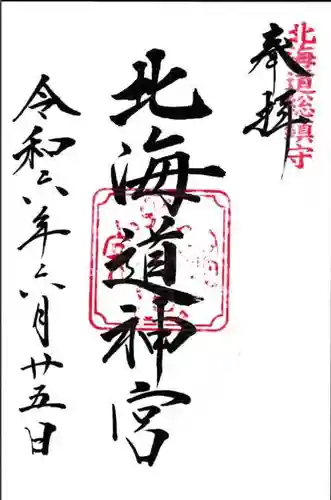 奉拝
北海道総鎮守
北海道神宮
令和六年六月廿五日